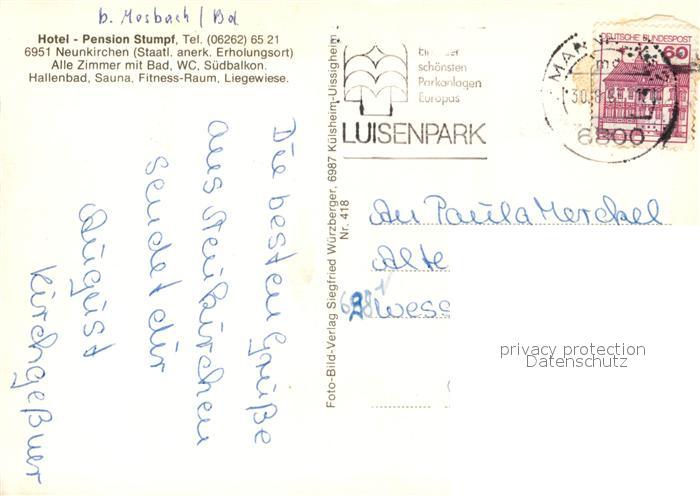 b. Mosbach / Bd
Hotel - Pension Stumpf, Tel. (06262) 65 21
6951 Neunkirchen (Staatl. anerk. Erholungsort)
Alle Zimmer mit Bad, WC, Südbalkon.
Hallenbad, Sauna, Fitness-Raum, Liegewiese.
Die besten Grüße
aus Neukürchen
sendet dir
August
Kirchgeßner
Foto-Bild-Verlag Siegfried Würzberger, 6987 Külsheim-Uissigheim
Nr. 418
schönsten
Parkanlagen
Europas
LUISENPARK
6800
DEUTSCHE BUNDESPOST
60
An Paula Merckel
Alte
Wess
privacy protection
Datenschutz